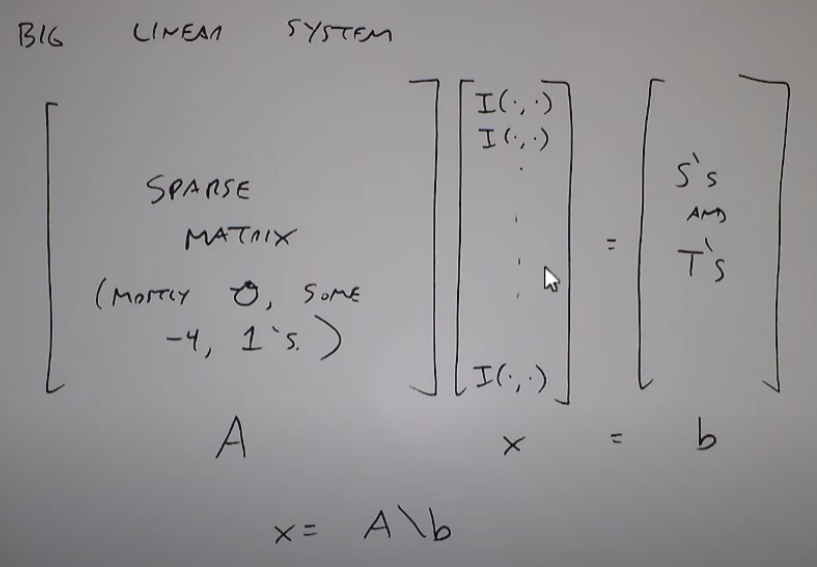 BIG LINEAR SYSTEM
I(·,·)
I(·,·)
SPARSE
MATRIX
(MOSTLY 0, SOME
-4, 1's.)
I(·,·)
=
S's
AND
T's
A x = b
x = A\b